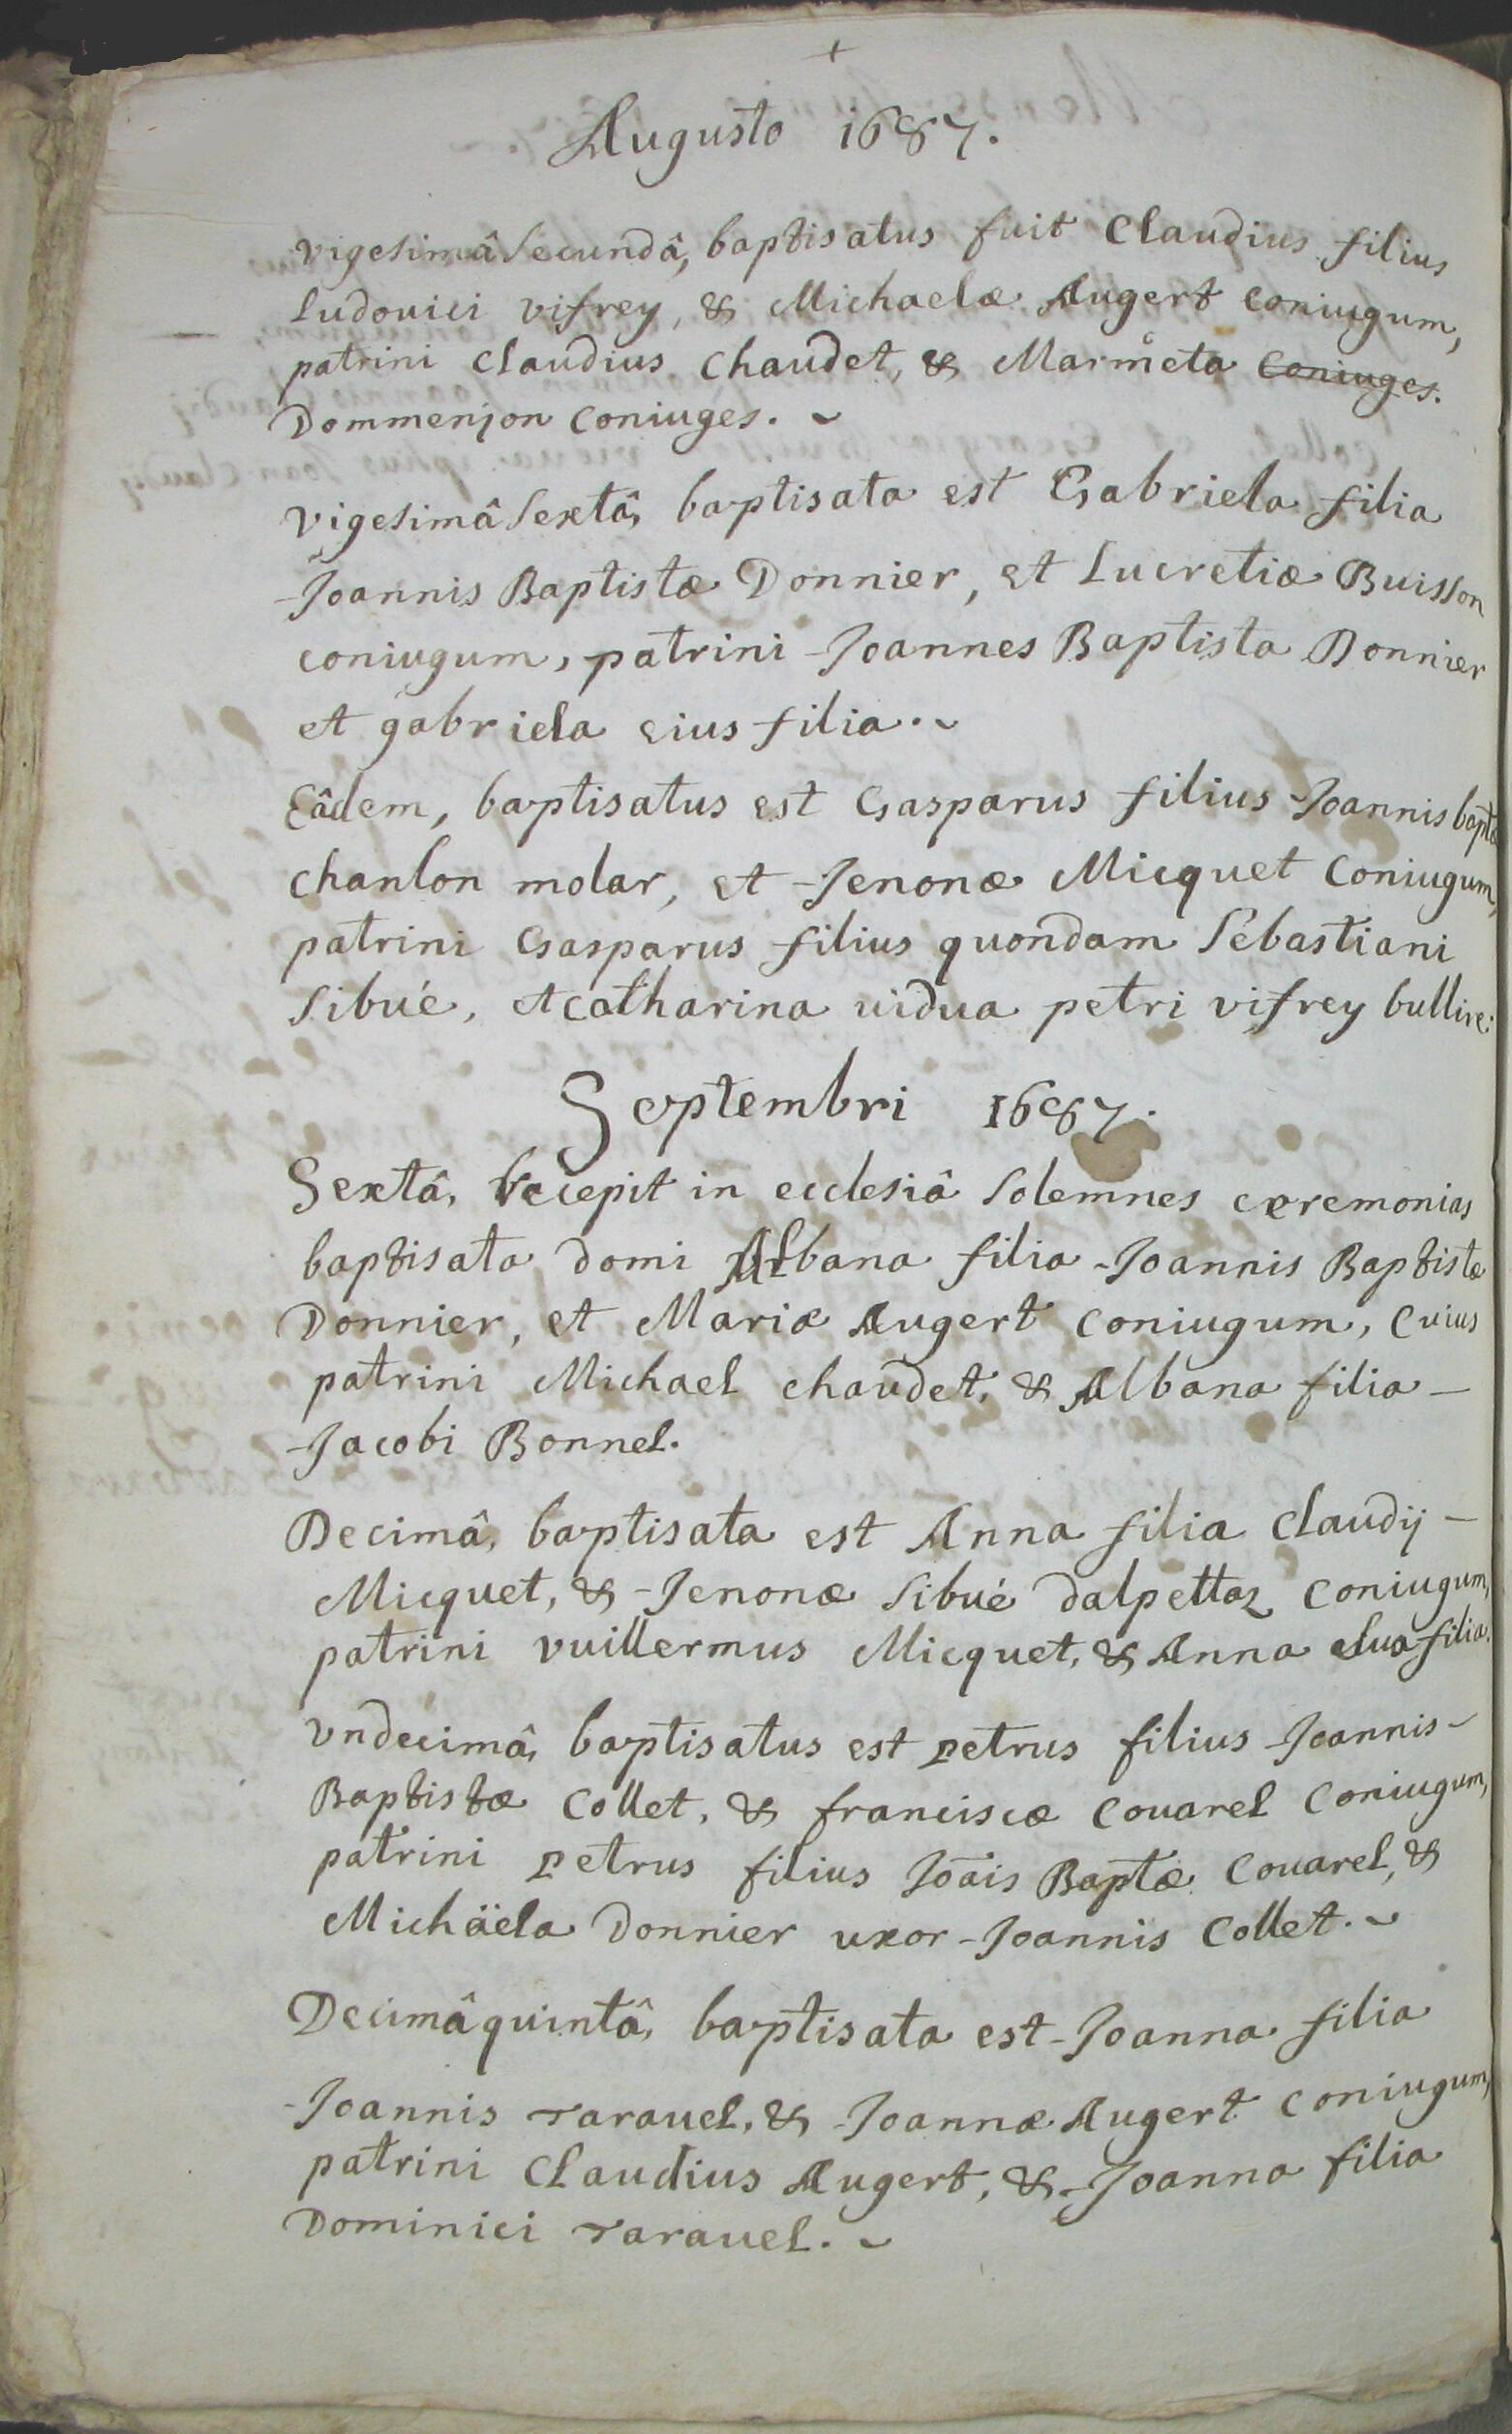 +
Augusto 1687.
vigesimâ secundâ, baptisatus fuit Claudius filius
Ludouici vifrey, & Michaelæ Augert coniugum,
patrini Claudius Chaudet, & Marmeta coniuges.
Dommenjon coniuges.
vigesimâ sextâ, baptisata est Gabriela filia
Joannis Baptistæ Donnier, et Lucretiæ Buisson
coniugum, patrini Joannes Baptista Donnier
et gabriela eius filia.
Eâdem, baptisatus est Gasparus filius Joannis baptæ
chanlon molar, et Jenonæ Micquet Coniugum,
patrini Gasparus filius quondam Sébastiani
Sibué, et catharina uidua petri vifrey bullire:
Septembri 1687.
Sextâ, recepit in ecclesiâ solemnes cæremonias
baptisata domi Albana filia Joannis Baptistæ
Donnier, et Mariæ Augert coniugum, cuius
patrini Michael chaudet, & Albana filia –
Jacobi Bonnel.
Decimâ, baptisata est Anna filia Claudij –
Micquet, & Jenonæ Sibué dalpettaz coniugum,
patrini vuillermus Micquet, & Anna sua filia.
vndecimâ, baptisatus est petrus filius Joannis –
Baptistæ Collet, & franciscæ Couarel Coniugum,
patrini petrus filius Joāis Baptæ Couarel, &
Michäela Donnier uxor Joannis Collet.
Decimâ quintâ, baptisata est Joanna filia
Joannis rarauel, & Joannæ Augert coniugum,
patrini Claudius Augert, & Joanna filia
Dominici rarauel.